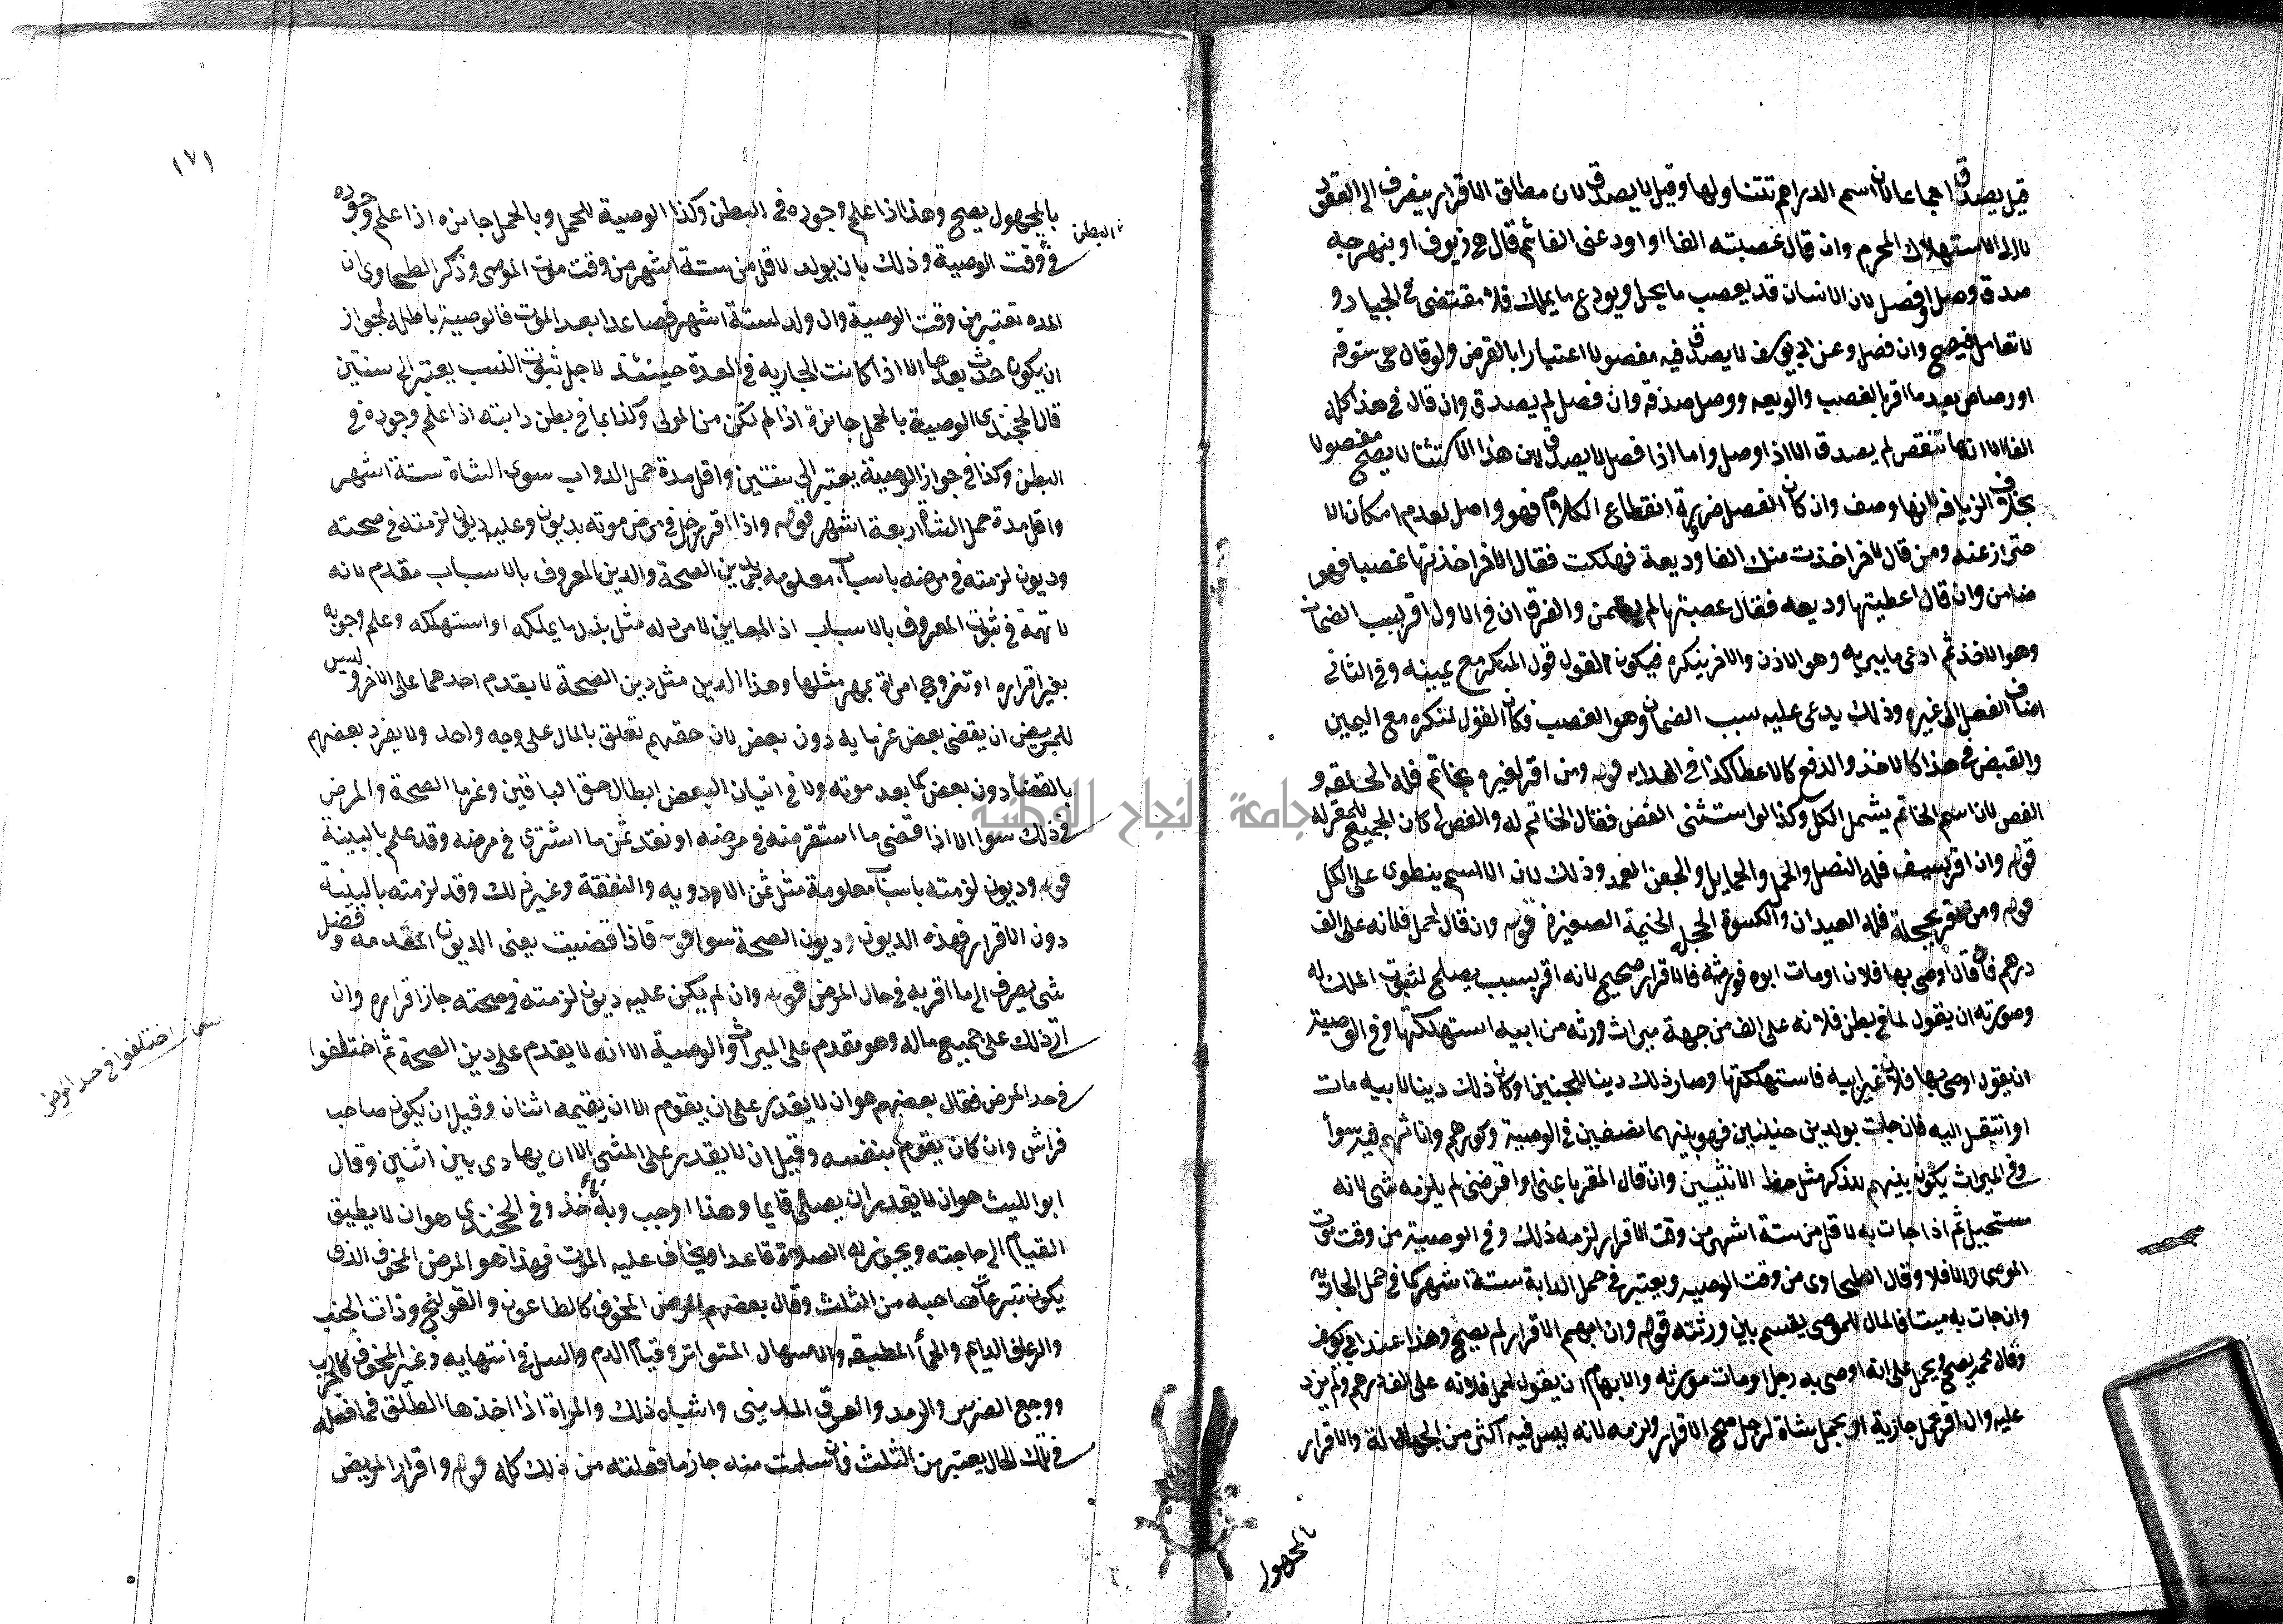 قيل يصدق اجماعا لان اسم الدراهم تتناولها وقيل لا يصدق لان مطلق الاقرار ينصرف الى العقود
لا الى الاستهلاك المحرم وان قال غصبته الفا او اودعنى الفا ثم قال هى زيوف او بنهرجه
صدق وصل او فصل لان الانسان قد يغصب ما يجد ويودع ما يملك فلا مقتضى فى الجياد و
لا تعامل فيصح وان فصل وعن ابى يوسف لا يصدق فيه مفصولا اعتبارا بالقرض ولو قال هى ستوقه
او رصاص بعد ما اقر بالغصب والوديعه ووصل صدق وان فصل لم يصدق وان قال فى هذا كله
الفا الا انها تنقص لم يصدق الا اذا وصل واما اذا فصل لا يصدق لان هذا الاستثنا لا يصح مفصولا
بخلاف الزيافه لانها وصف وان كان الفصل ضرورة انقطاع الكلام فهو واصل لعدم امكان الا
حتراز عنه ومن قال لاخر اخذت منك الفا وديعة فهلكت فقال الاخر اخذتها غصبا فهو
ضامن وان قال اعطيتها وديعه فقال غصبتها لم يضمن والفرق ان فى الاول اقر بسبب الضمان
وهو الاخذ ثم ادعى ما يبريه وهو الاذن والاخر ينكره فيكون القول قول المنكر مع يمينه وفى الثانى
اضاف الفصل الى غيره وذلك يدعى عليه سبب الضمان وهو الغصب فكان القول لمنكره مع اليمين
والقبض فى هذا كالاخذ والدفع كالاعطا كذا فى الهدايه قوله ومن اقر لغيره بخاتم فله الحلقه و
الفص لان اسم الخاتم يشمل الكل وكذا لو استثنى الفص فقال الخاتم له والفص لى كان الجميع للمقر له
قوله وان اقر بسيف فله النصل والحمايل والجفن الغمد وذلك لان الاسم ينطوى على الكل
قوله ومن اقر بحجلة فله العيدان والكسوة الحجله الخيمة الصغيرة قوله وان قال لحمل فلانه على الف
درهم فان قال اوصى بها فلان او مات ابوه فورثه فالاقرار صحيح لانه اقر بسبب يصلح لثبوت الملك له
وصورته ان يقول لما فى بطن فلانه على الف من جهة ميراث ورثه من ابيه استهلكتها وفى الوصية
ان يقول اوصى بها فلان غير ابيه فاستهلكتها وصار ذلك دينا للجنين او كان ذلك دينا لابيه مات
او انتقل اليه فان جات بولدين فهو بينهما نصفين فى الوصية ذكورهم واناثهم فيه سوأ
وفى الميراث يكون بينهم للذكر مثل حظ الانثيين وان قال المقر باعنى او اقرضنى لم يلزمه شى لانه
مستحيل ثم اذا جات به لاقل من ستة اشهر من وقت الاقرار لزمه ذلك وفى الوصية من وقت موت
الموصى والا فلا وقال الطحاوى من وقت الوصيه ويعتبر فى حمل الدابة ستة اشهر كما فى حمل الجاريه
وان جات به ميتا فالمال للموصى يقسم بين ورثته قوله وان ابهم الاقرار لم يصح وهذا عند ابى يوسف
وقال محمد يصح ويحمل على انه اوصى به رجل او مات مورثه والابهام ان يقول لحمل فلانه على الف درهم ولم يزد
عليه وان اقر بحمل جارية او بحمل شاة لرجل صح الاقرار ولزمه لانه ليس فيه اكثر من الجهالة والاقرار
بالمجهول
١٧١
بالمجهول يصح وهذا اذا علم وجوده فى البطن وكذا الوصية للحمل وبالحمل جائزه اذا علم وجوده
البطن
فى وقت الوصية وذلك بان يولد لاقل من ستة اشهر من وقت موت الموصى وذكر الطحاوى ان
المده تعتبر من وقت الوصية وان ولد لستة اشهر فصاعدا بعد الموت فالوصية باطله لجواز
ان يكون حدث بعدها الا اذا كانت الجاريه فى العدة حينئذ لاجل ثبوت النسب يعتبر الى سنتين
قال الخجندى الوصية بالحمل جائزة اذا لم تكن من المولى وكذا بما فى بطن دابته اذا علم وجوده فى
البطن وكذا فى جواز الوصية يعتبر الى سنتين واقل مدة حمل الدواب سوى الشاة ستة اشهر
واقل مدة حمل الشاة اربعة اشهر قوله واذا اقر رجل فى مرض موته بديون وعليه ديون لزمته فى صحته
وديون لزمته فى مرضه باسباب معلومه فدين الصحة والدين المعروف بالاسباب مقدم لانه
لا تهمة فى ثبوت المعروف بالاسباب اذ المعاين لا مرد له مثل بدل ما يملكه او استهلكه وعلم وجوبه
بغير اقراره او تزوج امراة بمهر مثلها وهذا الدين مثل دين الصحة لا يقدم احدهما على الاخر وليس
للمريض ان يقضى بعض غرمايه دون بعض لان حقهم تعلق بالمال على وجه واحد ولا يفرد بعضهم
بالقضا دون بعض كما بعد موته ولان فى اتيان البعض ابطال حق الباقين وغرما الصحة والمرض
فى ذلك سوا الا اذا قضى ما استقرضه فى مرضه او نقد ثمن ما اشترى فى مرضه وقد علم بالبينة
قوله وديون لزمته باسباب معلومة مثل ثمن الادويه والنفقة وغير ذلك وقد لزمته بالبينة
دون الاقرار فهذه الديون وديون الصحة سوا قوله فاذا قضيت يعنى الديون المقدمه وفضل
شى يصرف الى ما اقر به فى حال المرض قوله وان لم يكن عليه ديون لزمته فى صحته جاز اقراره وان
اتى ذلك على جميع ماله وهو مقدم على الميراث والوصية الا انه لا يقدم على دين الصحة ثم اختلفوا
اختلفوا فى حد المرض
فى حد المرض فقال بعضهم هو ان لا يقدر على ان يقوم الا ان يقيمه اثنان وقيل ان يكون صاحب
فراش وان كان يقوم بنفسه وقيل ان لا يقدر على المشى الا ان يهادى بين اثنين وقال
ابو الليث هو ان لا يقدر ان يصلى قايما وهذا اوجب وبه ناخذ وفى الخجندى هو ان لا يطيق
القيام الى حاجته ويجوز له الصلاة قاعدا ويخاف عليه الموت فهذا هو المرض المخوف الذى
يكون تبرعات صاحبه من الثلث وقال بعضهم المرض المخوف كالطاعون والقولنج وذات الجنب
والرعاف الدايم والحمأ المطبقه والاسهال المتواتر وقيام الدم والسل فى انتهايه وغير المخوف كالجرب
ووجع الضرس والرمد والعرق المدينى واشباه ذلك والمراة اذا اخذها الطلق فما فعلته
فى تلك الحال يعتبر من الثلث وان سلمت منه جاز ما فعلته من ذلك كله قوله واقرار المريض
جامعة النجاح الوطنية